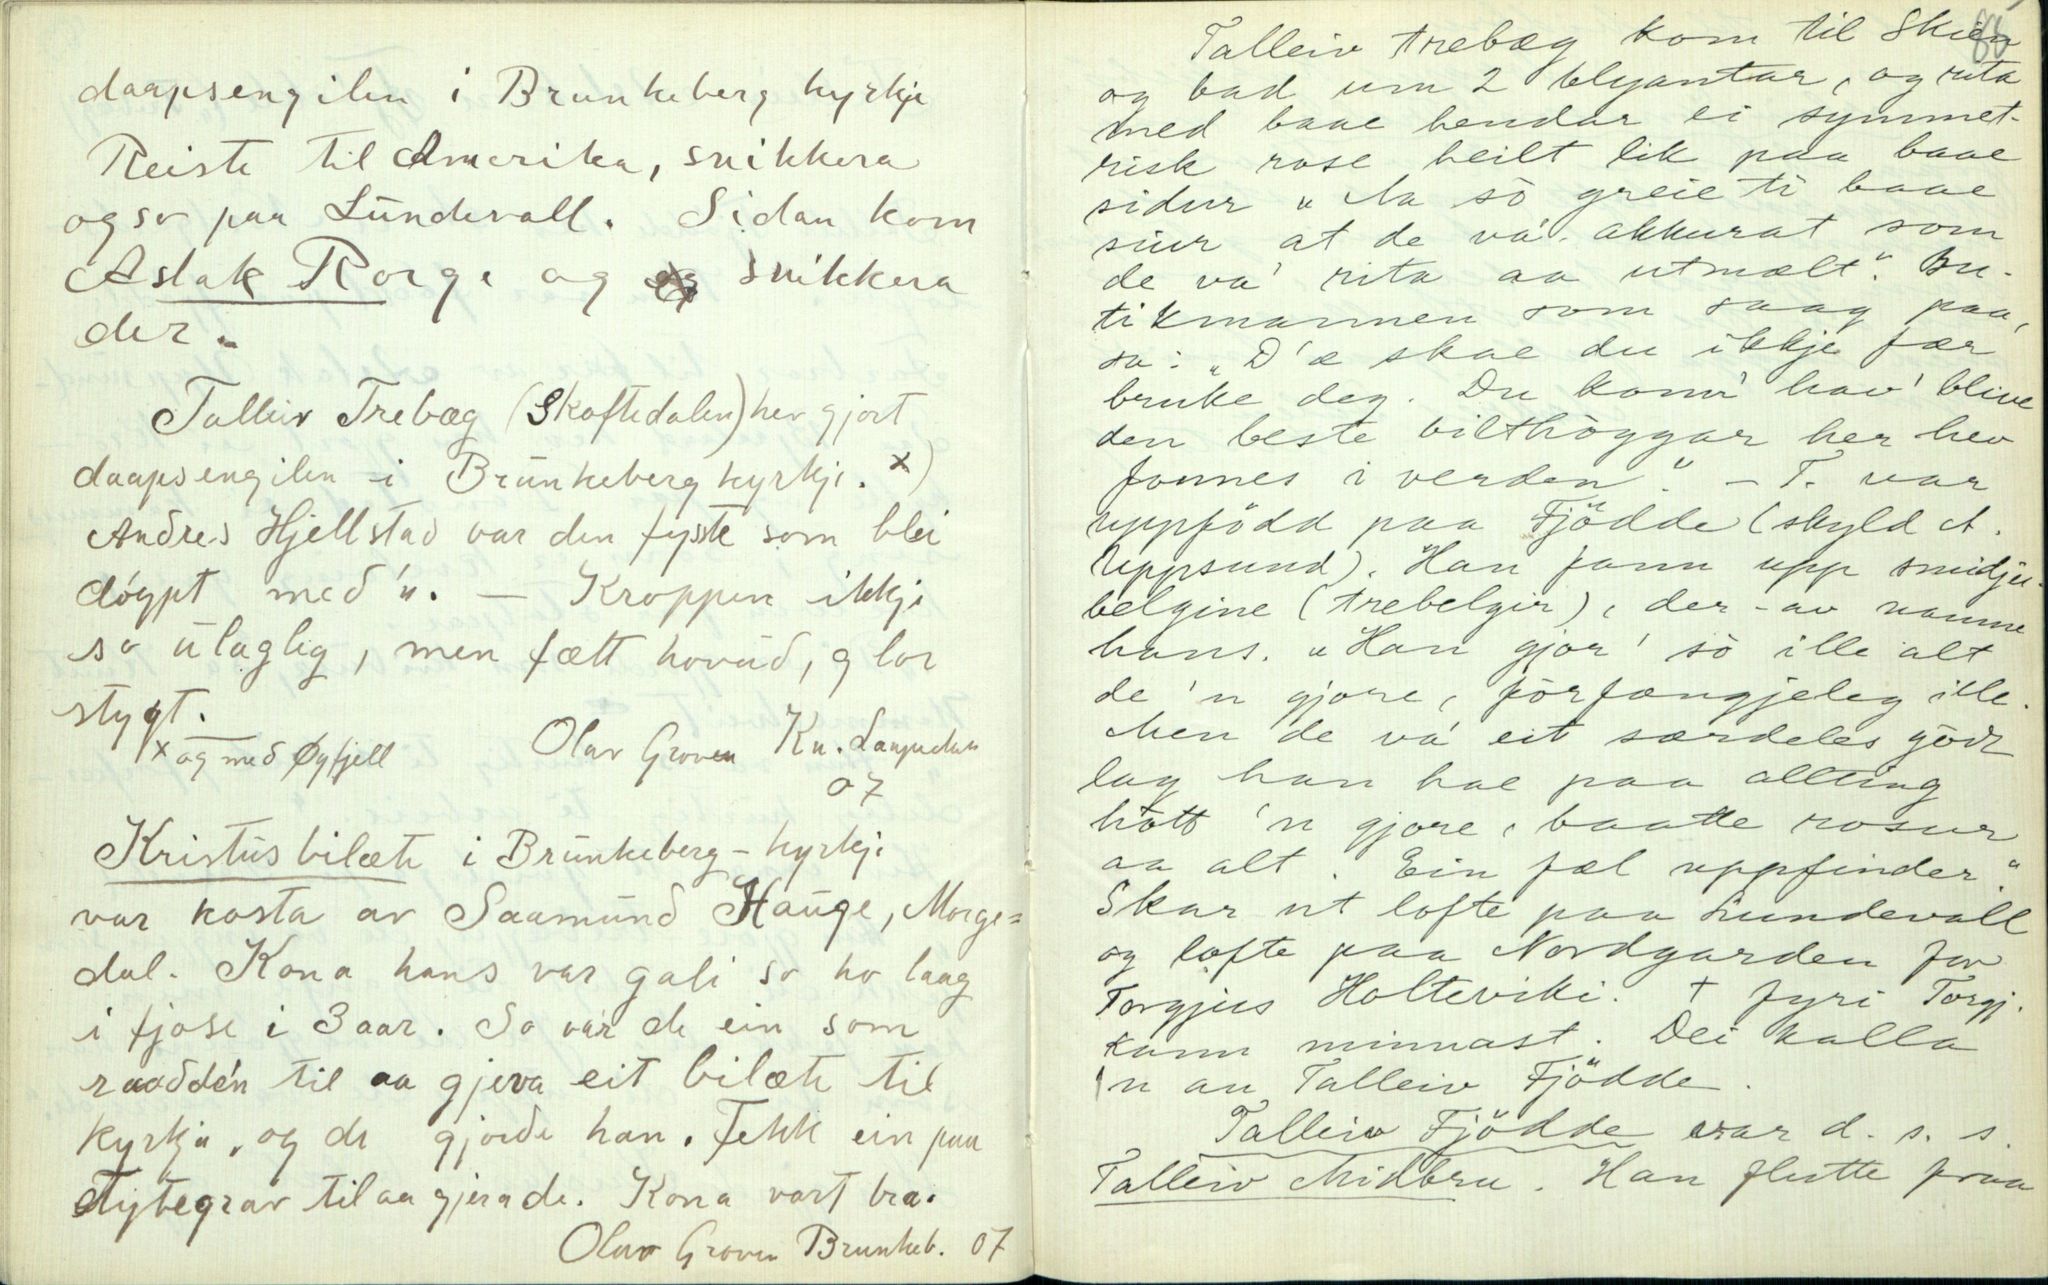 daapsengilen i Brunkeberg kyrkje
Reiste til Amerika, snikkera
ogso paa Lundevall. Sidan kom
Aslak Rorge og snikkera
der.
Talleiv Trebæg (Skoftedalen) hev gjort
daapsengilen i Brunkeberg kyrkje. x)
Andres Hjellstad var den fyste som blei
döypt med 'n. — Kroppen ikkje
so ulaglig, men fætt hovud, glor
stygt.
x og med Øyfjell
Olav Groven Kn. Laupedalen
07
Kristusbilæte i Brunkeberg-kyrkje
var kosta av Saamund Hauge, Morge=
dal. Kona hans var gali so ho laag
i fjose i 3 aar. So var de ein som
raadde'n til aa gjeva eit bilæte til
kyrkja, og de gjorde han. Fekk ein paa
Tytegrav til aa gjera de. Kona vart bra.
Olav Groven Brunkeb. 07
86
Talleiv trebæg kom til Skien
og bad um 2 blyantar, og rita
med baae hendar ei symmet-
risk rose heilt lik paa baae
sidur „Aa sò greie ti baae
siur at de va' akkurat som
de va' rita aa utmælt". Bu-
tikmannen som saag paa,
sa: „D'æ skae du ikkje fær
bruke deg. Du konn' hav' blive
den beste bilthöggar her hev
fonnes i verden." – T. var
uppfödd paa Fjödde (skyld A.
Uppsund). Han fann upp smidju-
belgine (trebelgir), der-av namne
hans. „Han gjor' sò ille alt
de 'n gjore, fòrfængjeleg ille.
Men de va' eit særdeles gòdt
lag han hae paa allting
hòtt 'n gjore, baatte rosur
aa alt. Ein fæl uppfinder."
Skar ut lofte paa Lundevall
og lofte paa Nordgarden for
Torgjus Holteviki. † fyri Torgj.
kann minnast. Dei kalla
'n au Talleiv Fjödde.
Talleiv Fjödde var d. s. s.
Talleiv Midbru. Han flutte fraa